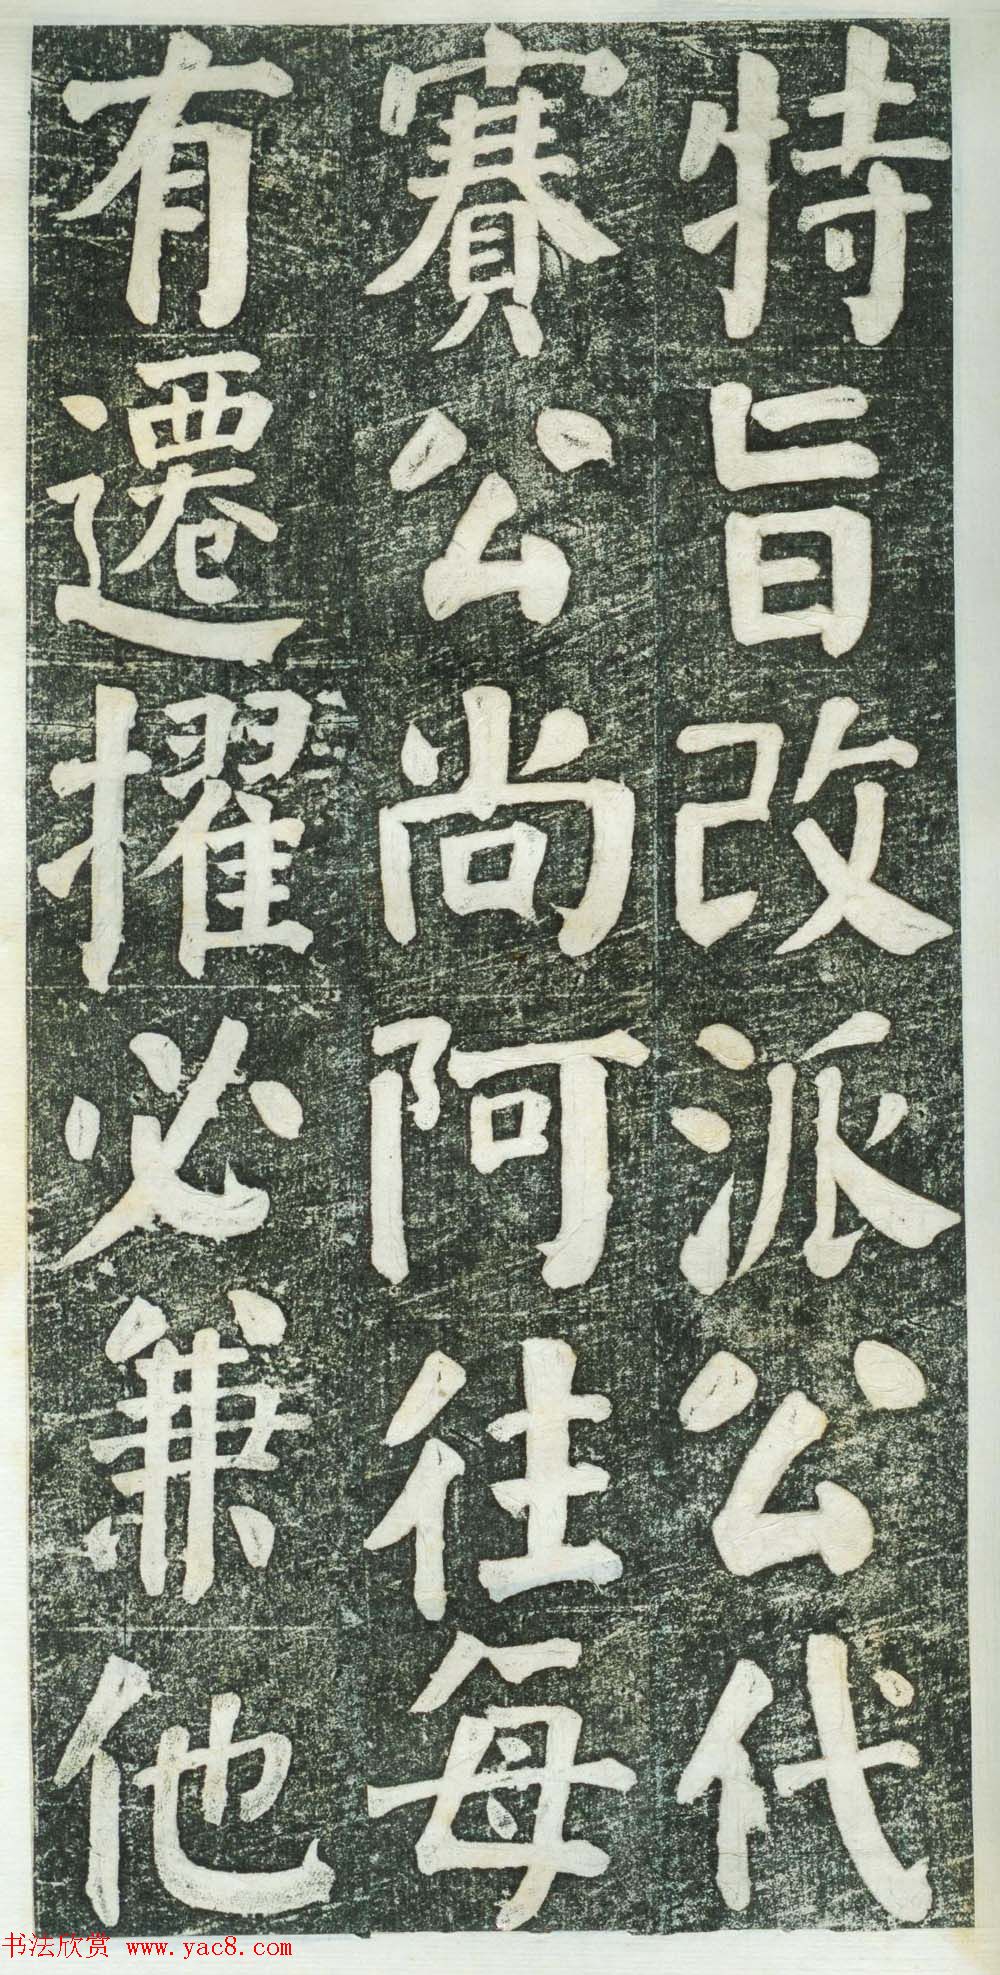 特旨改派公代
賽公尚阿往每
有遷擢必兼他
书法欣赏 www.yac8.com